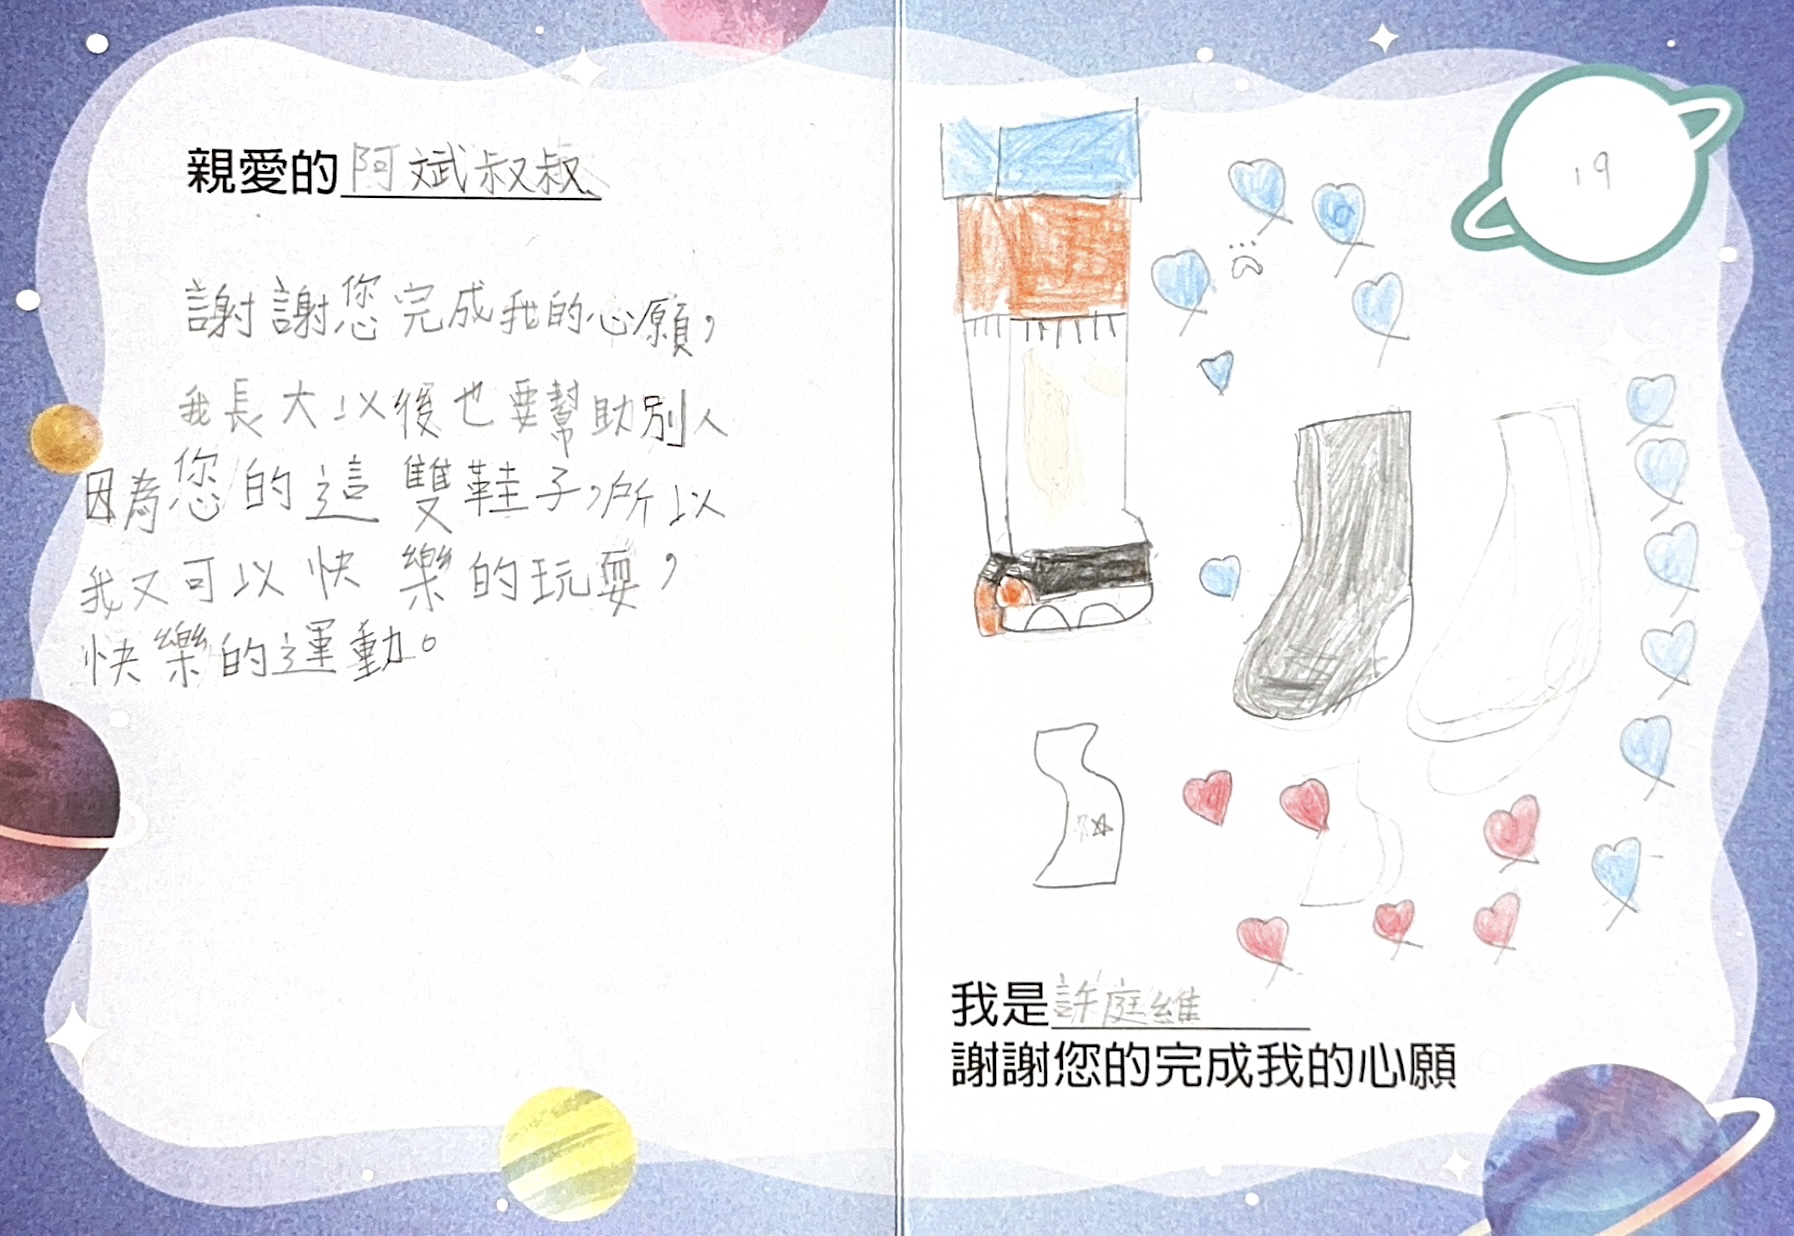 親愛的阿斌叔叔
謝謝您完成我的心願，
我長大以後也要幫助別人
因為您的這雙鞋子，所以
我又可以快樂的玩耍，
快樂的運動。
19
我是許庭維
謝謝您的完成我的心願